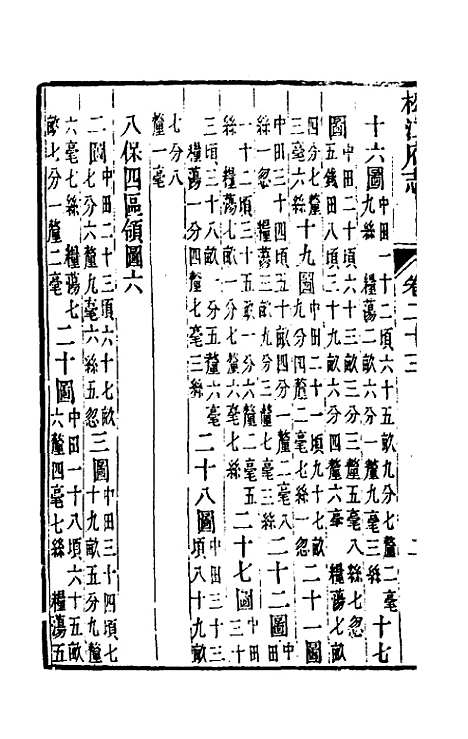 松江府志 卷二十三 二
十六圖 中田一十二頃六十五畝九分七釐二毫九絲 糧蕩二畝六分一釐九毫三絲 十七
圖 中田二十頃六十三畝三分三釐五毫八絲七忽 五錢田八頃三十九畝六分四釐六毫 糧蕩七畝
四分七釐三毫六絲 十九圖 中田二十一頃九十七畝二分釐二毫七絲一忽 二十一圖
中田三十四頃五十畝四分一釐二毫八絲一忽 糧蕩三畝九分三釐七毫三絲 二十二圖 中田
一十二頃三十五畝一分六釐二毫五絲 糧蕩七畝一分一釐六毫七絲 二十七圖 中田三十
三頃三十八畝二分五釐六毫 糧蕩一分四釐七毫三絲 二十八圖 中田三十三頃八十九畝
七分八釐一毫
八保四區領圖六
二圖 中田二十三頃六十七畝七分六釐九毫六絲五忽 三圖 中田三十四頃七十九畝五分九釐
六毫七絲 糧蕩七畝七分一釐二毫 二十圖 中田一十八頃六十五畝六釐四毫七絲 糧蕩五